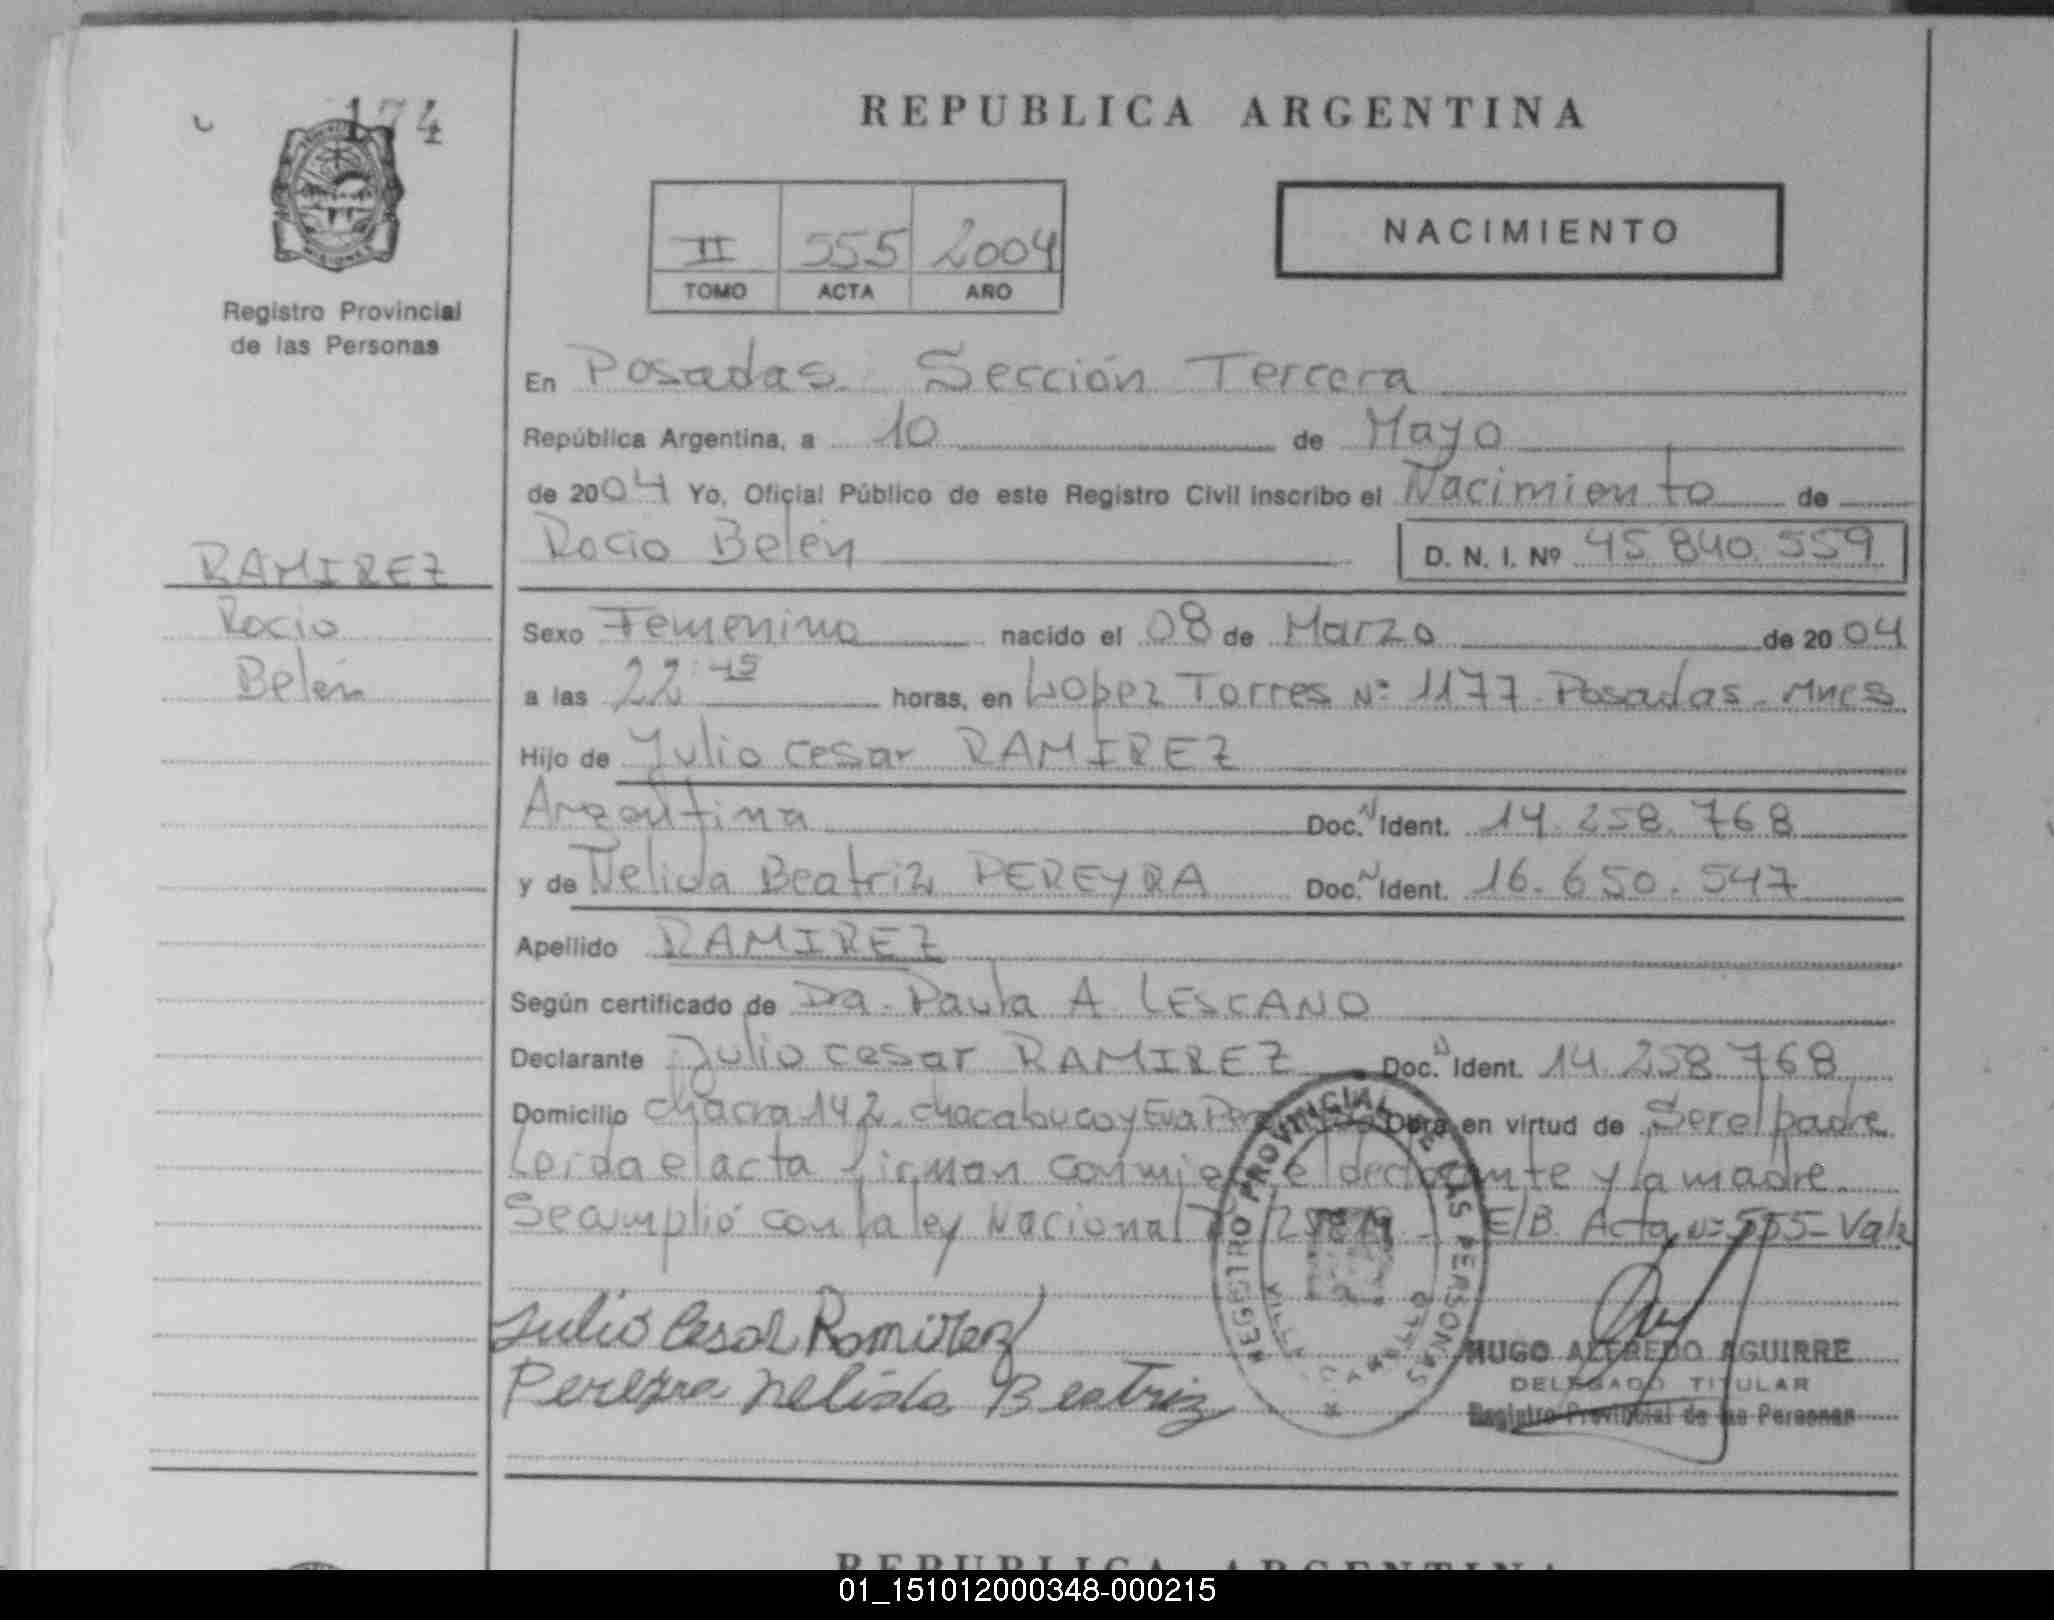 174
REPUBLICA ARGENTINA
NACIMIENTO
II 555 2004
TOMO ACTA AÑO
Registro Provincial
de las Personas
En Posadas. Sección Tercera
República Argentina, a 10 de Mayo
de 2004 Yo, Oficial Público de este Registro Civil inscribo el Nacimiento de
Rocio Belén D. N. I. Nº 45.840.559
RAMIREZ
Rocio
Belén
Sexo Femenino nacido el 08 de Marzo de 2004
a las 22:45 horas, en Lopez Torres Nº 1177 Posadas - Mnes
Hijo de Julio Cesar RAMIREZ
Argentina Doc. N Ident. 14.258.768
y de Nelida Beatriz PEREYRA Doc. N Ident. 16.650.547
Apellido RAMIREZ
Según certificado de Dra. Paula A. LESCANO
Declarante Julio Cesar RAMIREZ Doc. N Ident. 14.258.768
Domicilio chacra 142. chacabuco y Eva Obra en virtud de Ser el padre
Leida el acta firman conmigo el declarante y la madre
Se cumplió con la ley Nacional E/B. Acta Nº 555 - Vale
Julio Cesar Ramirez
Pereyra Nelida Beatriz
REGISTRO PROVINCIAL DE LAS PERSONAS
VILLA CABELLO
HUGO ALFREDO AGUIRRE
DELEGADO TITULAR
Registro Provincial de las Personas
REPUBLICA ARGENTINA
01_151012000348-000215